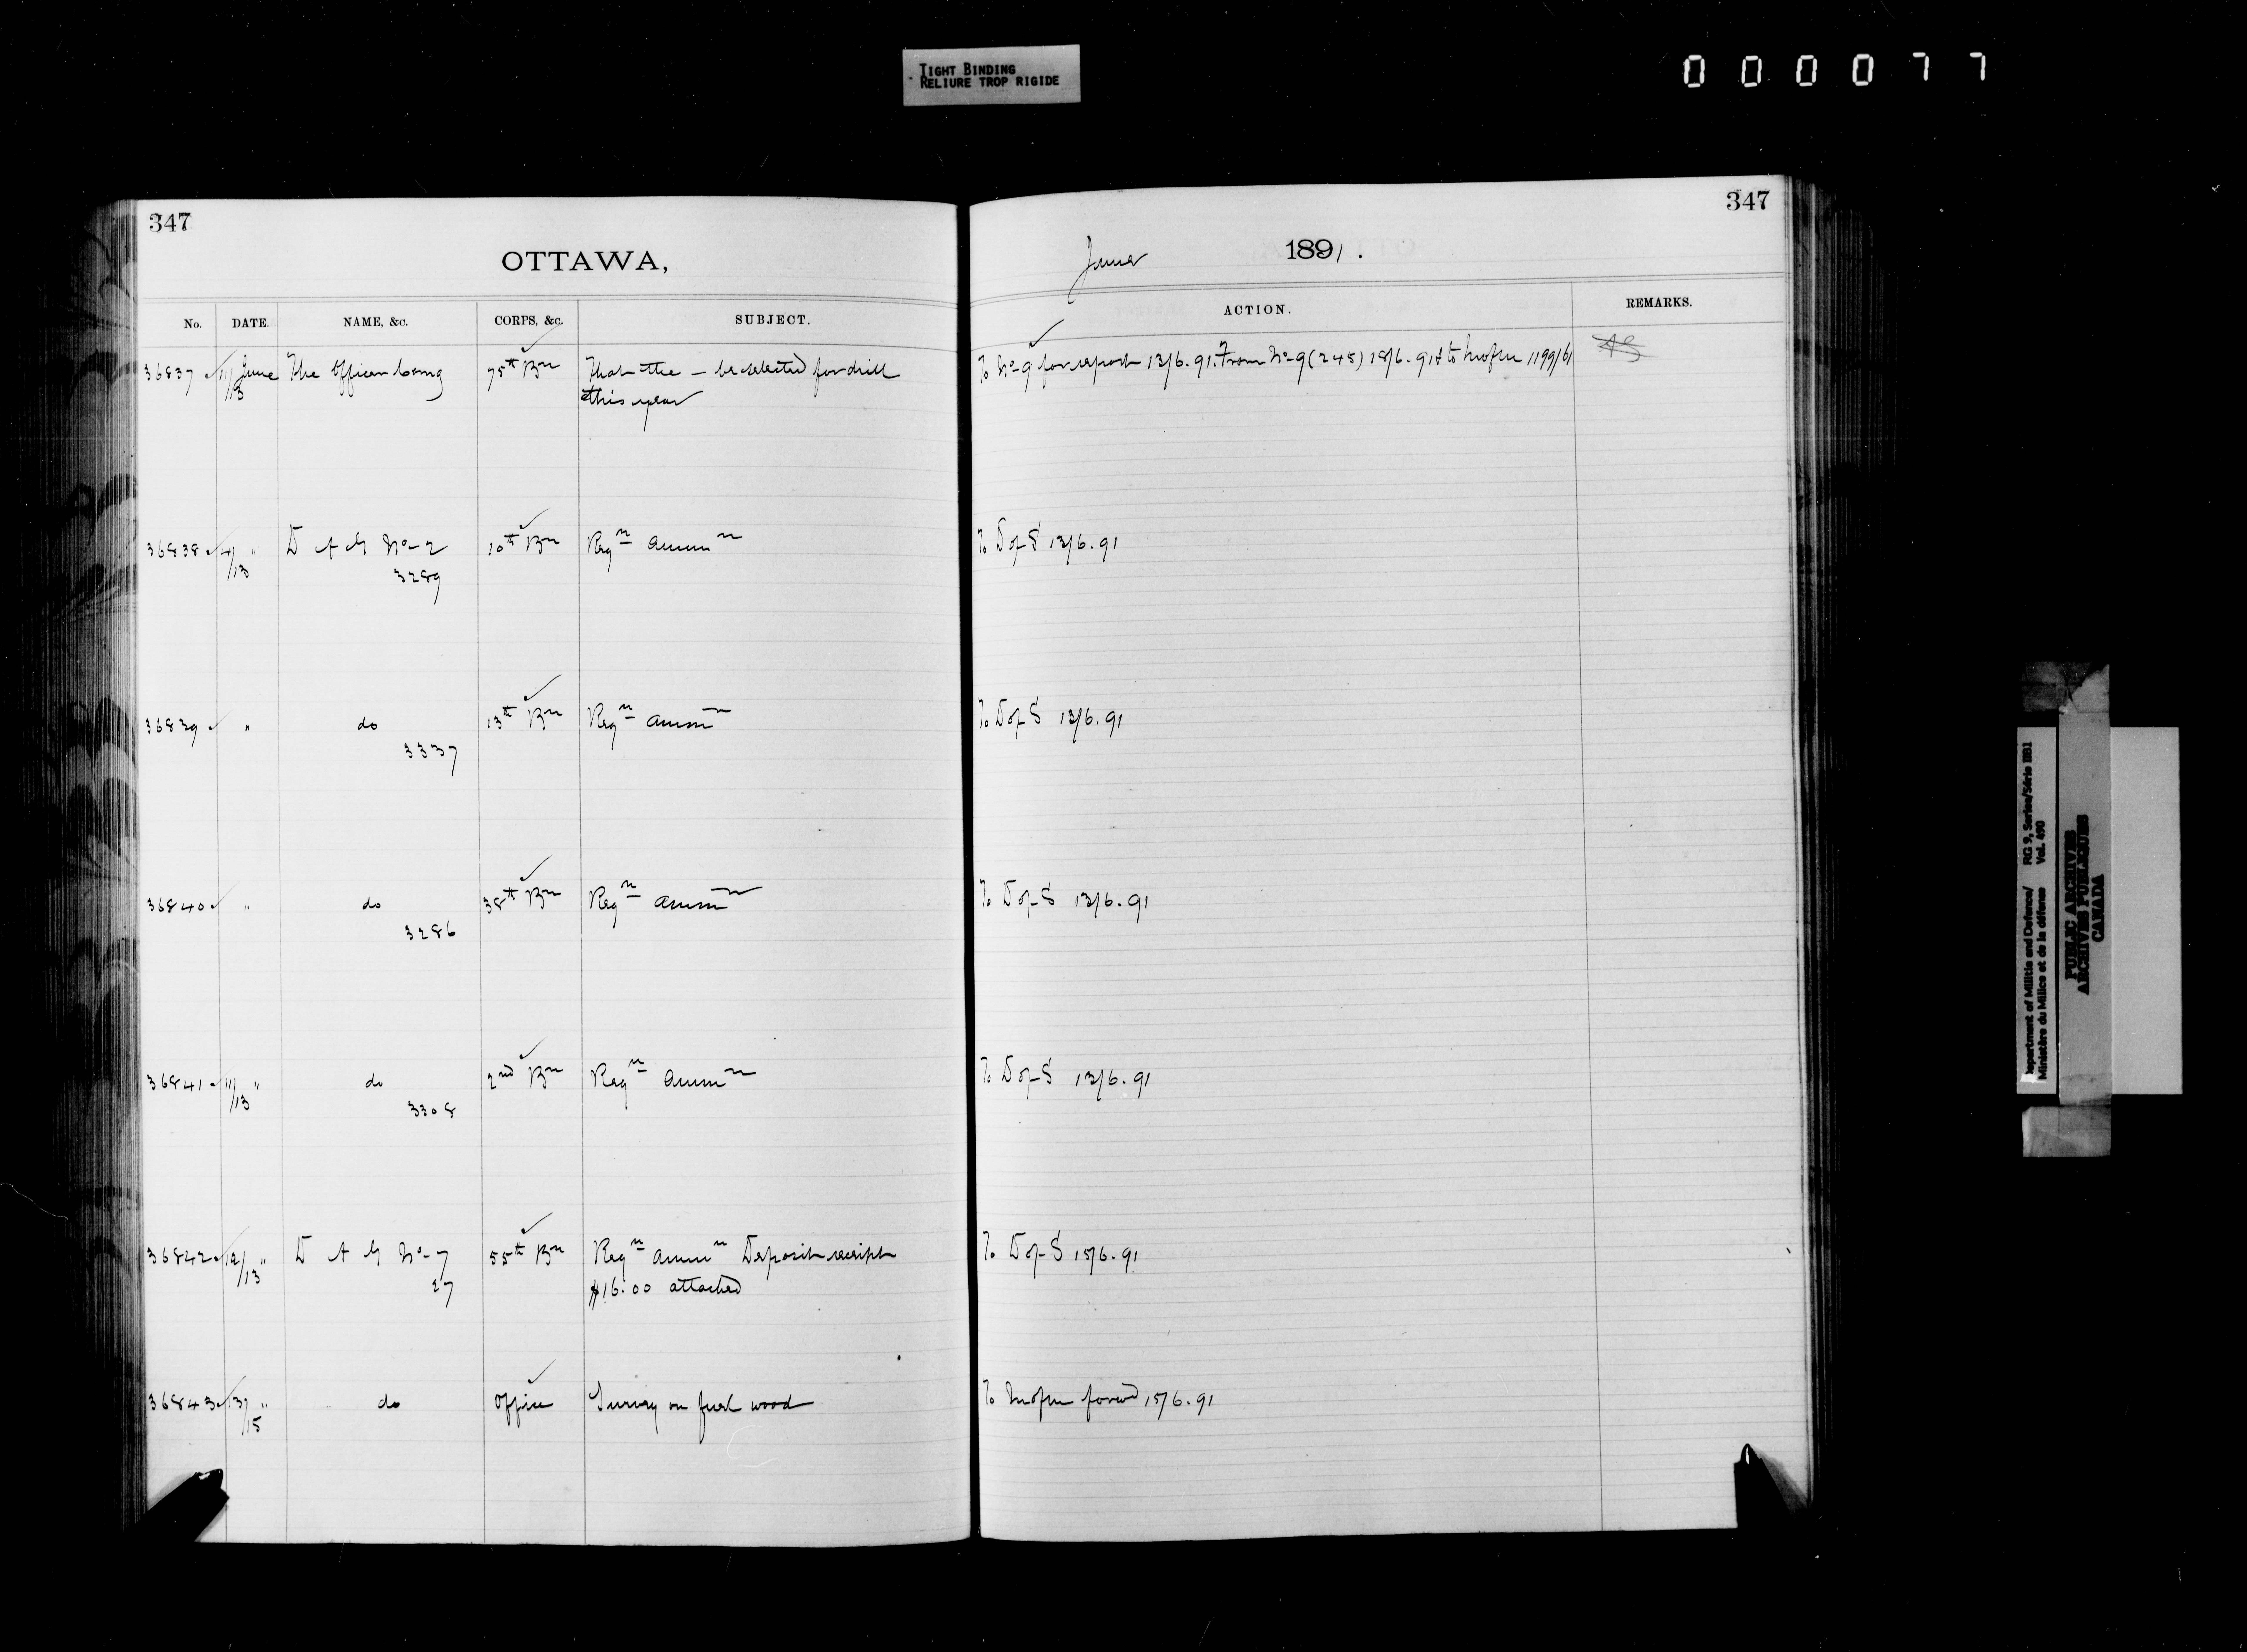 TIGHT BINDING
RELIURE TROP RIGIDE
000077
347
OTTAWA,
No. DATE. NAME, &c. CORPS, &c. SUBJECT.
36837 11/13 June The Officer Comg 75th Bn That the — be selected for drill
this year
36838 4/13 " D A G No-2 10th Bn Reqn Ammn
3289
36839 " do 13th Bn Reqn Ammn
3337
36840 " do 38th Bn Reqn Ammn
3286
36841 11/13 " do 2nd Bn Reqn Ammn
3308
36842 12/13 " D A G No-7 55th Bn Reqn Ammn Deposit receipt
27 $16.00 attached
36843 13/15 " do Office Survey on fuel wood
347
June 1891.
ACTION. REMARKS.
To No-9 for report 13/6.91. From No-9 (245) 18/6.91 & to 1199/61
To D of S 13/6.91
To D of S 13/6.91
To D of S 13/6.91
To D of S 13/6.91
To D of S 15/6.91
To 15/6.91
Department of Militia and Defence/ RG 9, Series/Série IIB1
Ministère du Milice et de la défense Vol. 490
PUBLIC ARCHIVES
ARCHIVES PUBLIQUES
CANADA